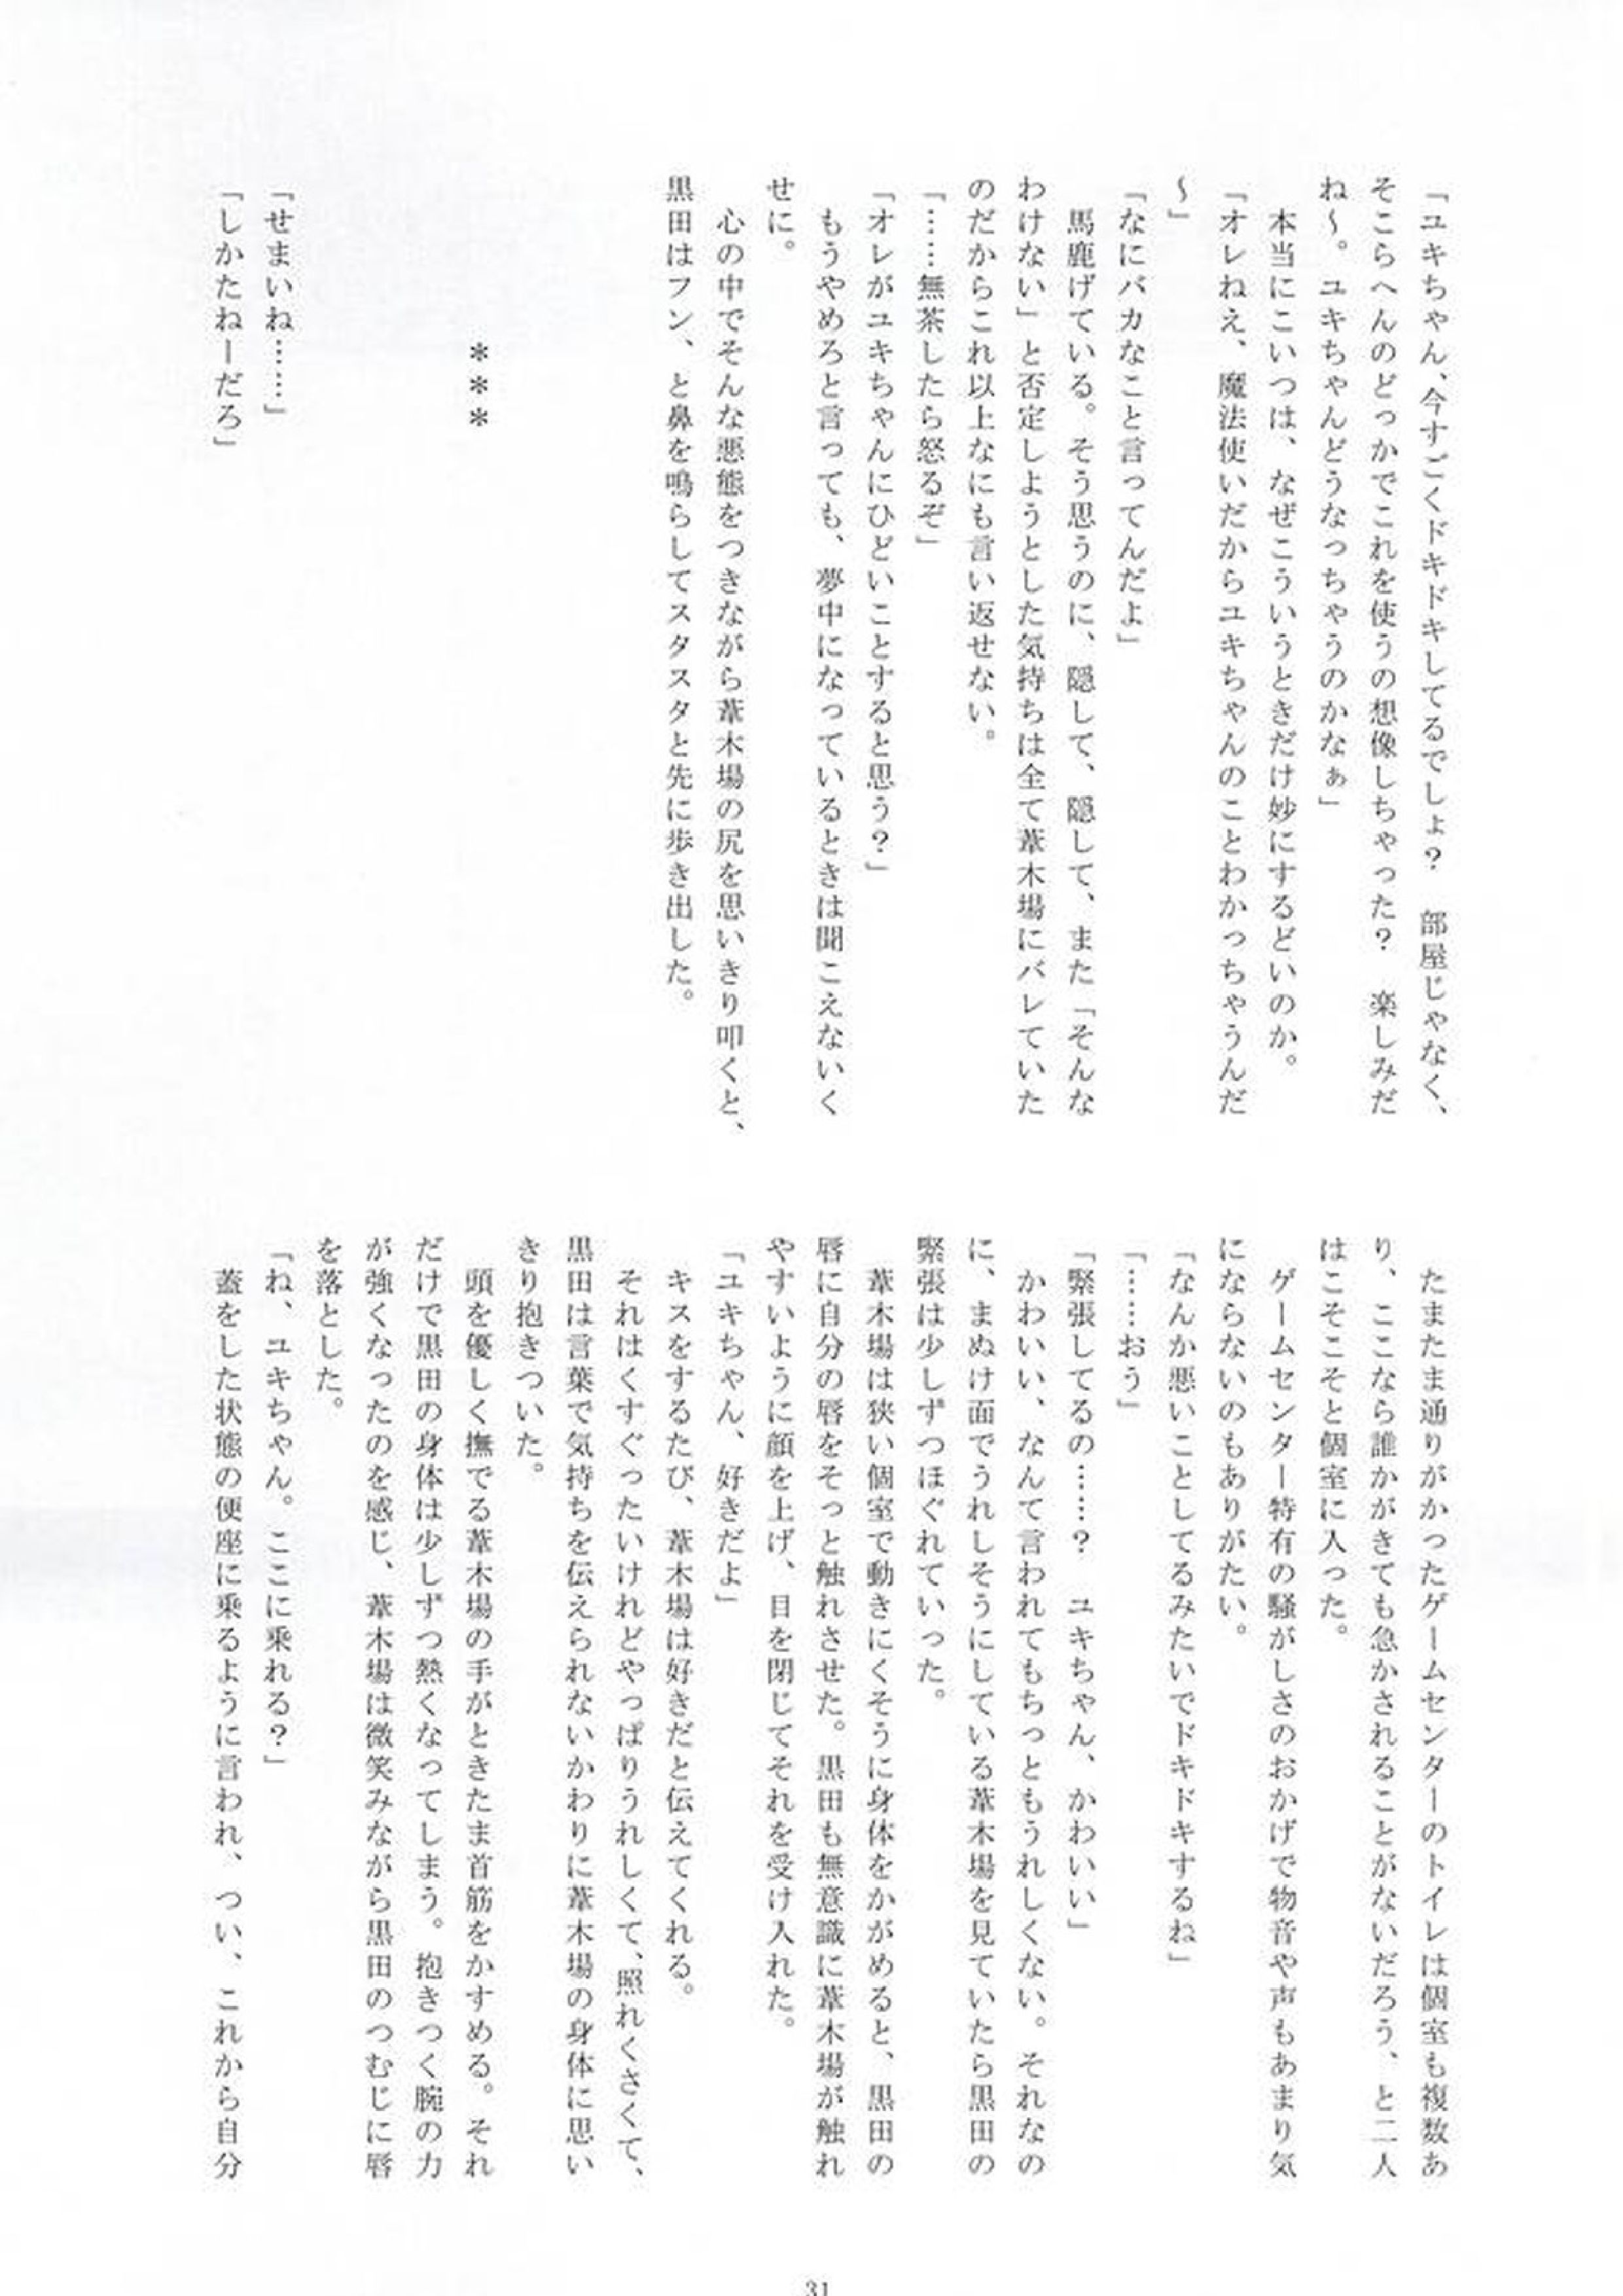 「ユキちゃん、今すごくドキドキしてるでしょ？　部屋じゃなく、
そこらへんのどっかでこれを使うの想像しちゃった？　楽しみだ
ね～。ユキちゃんどうなっちゃうのかなぁ」
　本当にこいつは、なぜこういうときだけ妙にするどいのか。
「オレねえ、魔法使いだからユキちゃんのことわかっちゃうんだ
～」
「なにバカなこと言ってんだよ」
　馬鹿げている。そう思うのに、隠して、隠して、また「そんな
わけない」と否定しようとした気持ちは全て葦木場にバレていた
のだからこれ以上なにも言い返せない。
「……無茶したら怒るぞ」
「オレがユキちゃんにひどいことすると思う？」
　もうやめろと言っても、夢中になっているときは聞こえないく
せに。
　心の中でそんな悪態をつきながら葦木場の尻を思いきり叩くと、
黒田はフン、と鼻を鳴らしてスタスタと先に歩き出した。
＊＊＊
「せまいね……」
「しかたねーだろ」
　たまたま通りがかったゲームセンターのトイレは個室も複数あ
り、ここなら誰かがきても急かされることがないだろう、と二人
はこそこそと個室に入った。
　ゲームセンター特有の騒がしさのおかげで物音や声もあまり気
にならないのもありがたい。
「なんか悪いことしてるみたいでドキドキするね」
「……おう」
「緊張してるの……？　ユキちゃん、かわいい」
　かわいい、なんて言われてもちっともうれしくない。それなの
に、まぬけ面でうれしそうにしている葦木場を見ていたら黒田の
緊張は少しずつほぐれていった。
　葦木場は狭い個室で動きにくそうに身体をかがめると、黒田の
唇に自分の唇をそっと触れさせた。黒田も無意識に葦木場が触れ
やすいように顔を上げ、目を閉じてそれを受け入れた。
「ユキちゃん、好きだよ」
　キスをするたび、葦木場は好きだと伝えてくれる。
　それはくすぐったいけれどやっぱりうれしくて、照れくさくて、
黒田は言葉で気持ちを伝えられないかわりに葦木場の身体に思い
きり抱きついた。
　頭を優しく撫でる葦木場の手がときたま首筋をかすめる。それ
だけで黒田の身体は少しずつ熱くなってしまう。抱きつく腕の力
が強くなったのを感じ、葦木場は微笑みながら黒田のつむじに唇
を落とした。
「ね、ユキちゃん。ここに乗れる？」
　蓋をした状態の便座に乗るように言われ、つい、これから自分
31